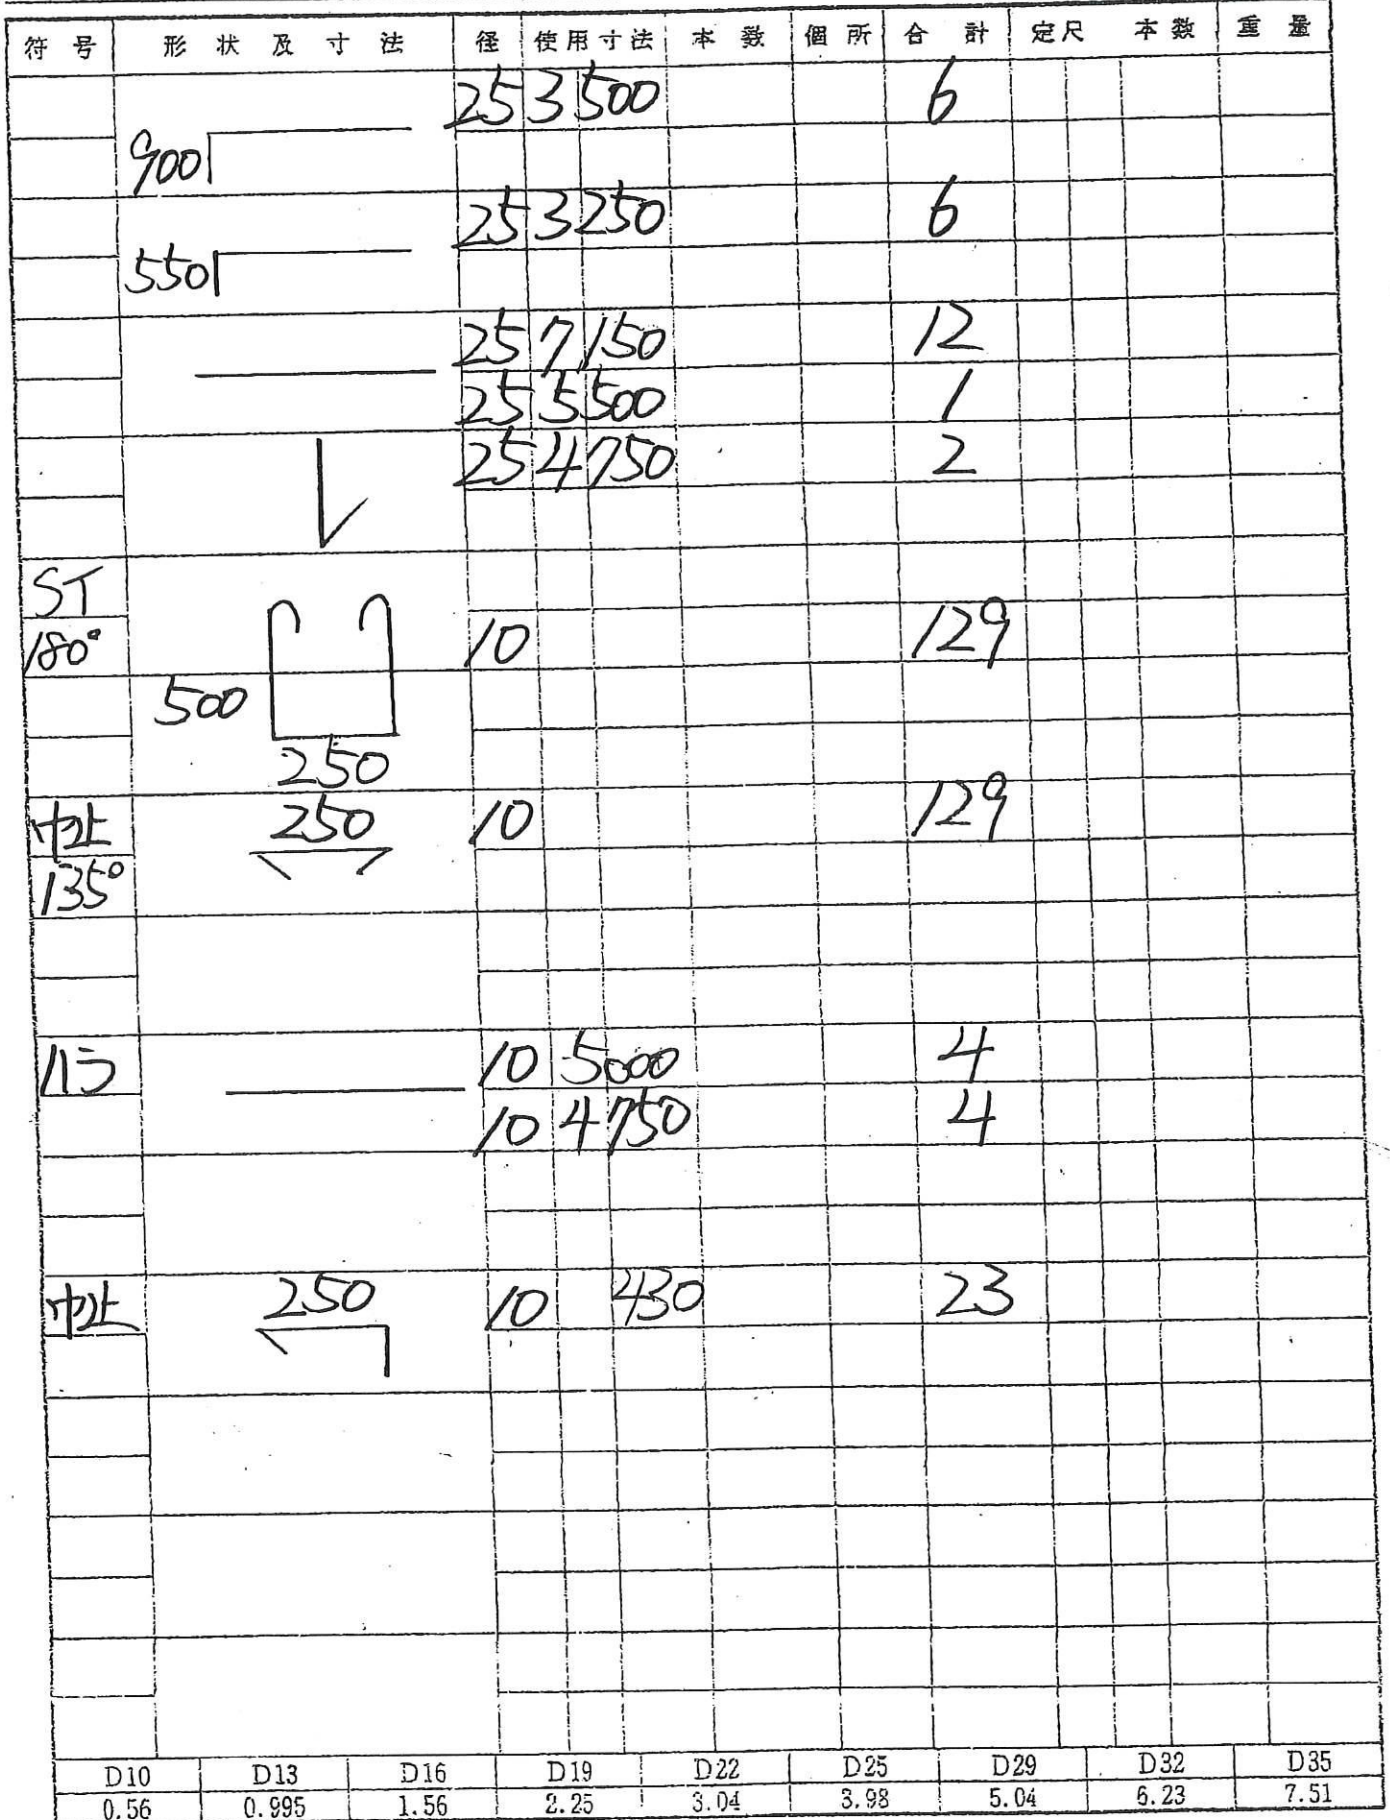 符号 形状及寸法 径 使用寸法 本数 個所 合計 定尺 本数 重量
25 3500 6
900
25 3250 6
550
25 7150 12
25 5500 1
25 4750 2
ST
180° 10 129
500
250
中止 250 10 129
135°
ハラ 10 5000 4
10 4750 4
中止 250 10 430 23
D10 D13 D16 D19 D22 D25 D29 D32 D35
0.56 0.995 1.56 2.25 3.04 3.98 5.04 6.23 7.51